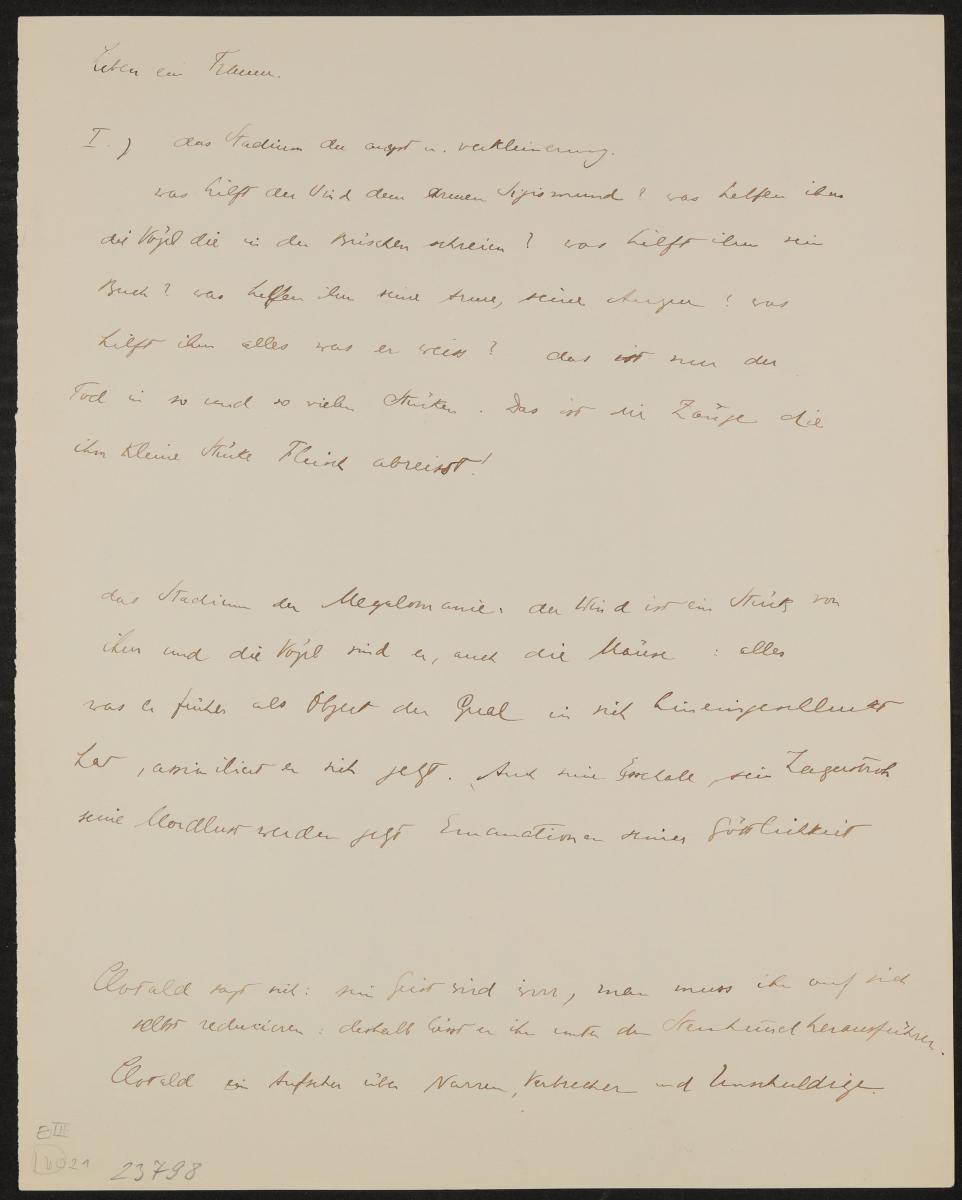 Leben ein Traum.
I.) das Stadium der angst u. verkleinerung.
was hilft der Wind dem armen Sigismund? was helfen ihm
die Vögel die in den Büschen schreien? was hilft ihm sein
Buch? was helfen ihm seine Arme, seine Augen? was
hilft ihm alles was er weiss? das ist nur der
Tod in so und so vielen Stücken. Das ist die Zange die
ihm kleine Stücke Fleisch abreisst!
das Stadium der Megalomanie. der Wind ist ein Stück von
ihm und die Vögel sind er, auch die Mäuse: alles
was er früher als Object der Qual in sich hineingeschluckt
hat, assimiliert er sich jetzt. Auch seine sein
seine Mordlust werden jetzt Emanationen seiner Göttlichkeit
Clotald sagt sich: sein Geist wird irrr, man muss ihn auf sich
selbst reducieren: deshalb lässt er ihn unter den Sternhimmel herausführen.
Clotald ein Aufseher über Narren, Verbrecher und Unschuldige.
E III
21
23798